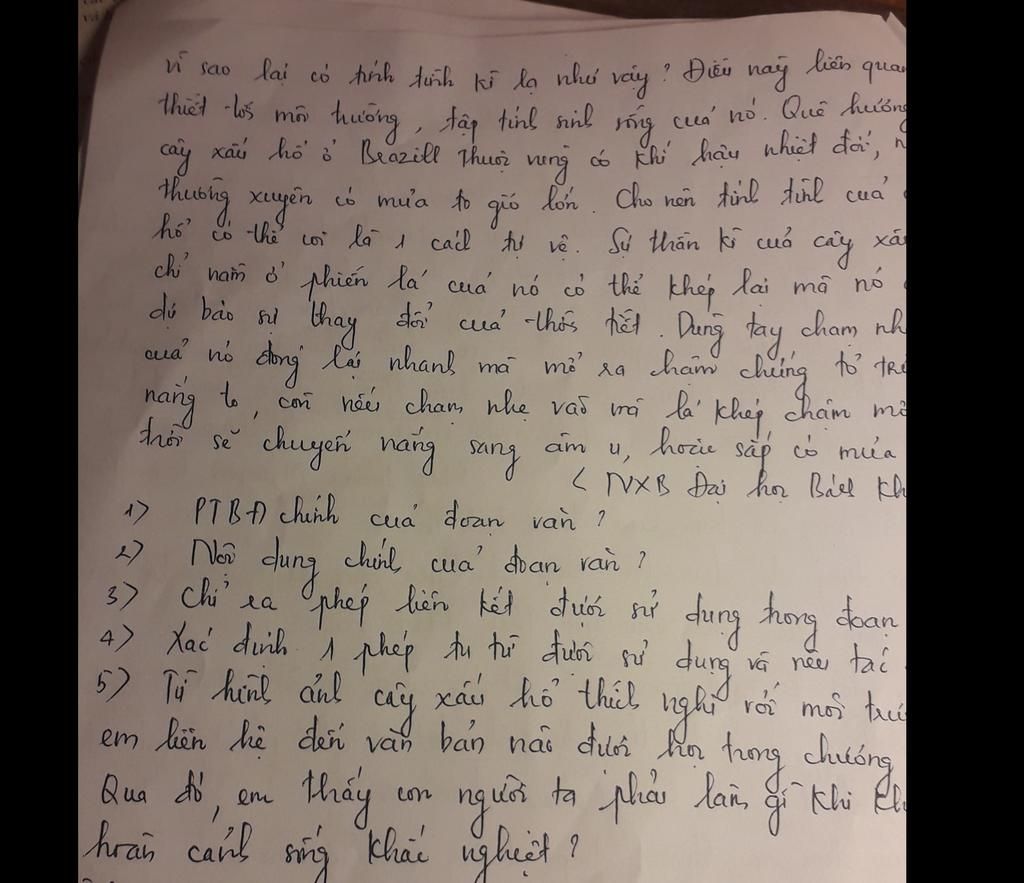 vì sao lại có tính tình kì lạ như vậy? Điều này liên quan
thiết tới môi trường, tập tính sinh sống của nó. Quê hương
cây xấu hổ ở Brazill thuộc vùng có khí hậu nhiệt đới,
thường xuyên có mưa to gió lớn. Cho nên tính tình của
hổ có thể coi là 1 cách tự vệ. Sự thần kì của cây xấu
chỉ nằm ở phiến lá của nó có thể khép lại mà nó
dự báo sự thay đổi của thời tiết. Dùng tay chạm nh
của nó đóng lại nhanh mà mở ra chậm chứng tỏ trờ
nắng to, còn nếu chạm nhẹ vào mà lá khép chậm mở
trời sẽ chuyển nắng sang âm u, hoặc sắp có mưa
< NXB Đại học Bách Kh
1> PTBĐ chính của đoạn văn?
2> Nội dung chính của đoạn văn?
3> Chỉ ra phép liên kết được sử dụng trong đoạn
4> Xác định 1 phép tu từ được sử dụng và nêu tác
5> Từ hình ảnh cây xấu hổ thích nghi với môi trườ
em liên hệ đến văn bản nào được học trong chương
Qua đó, em thấy con người ta phải làm gì khi
hoàn cảnh sống khắc nghiệt?